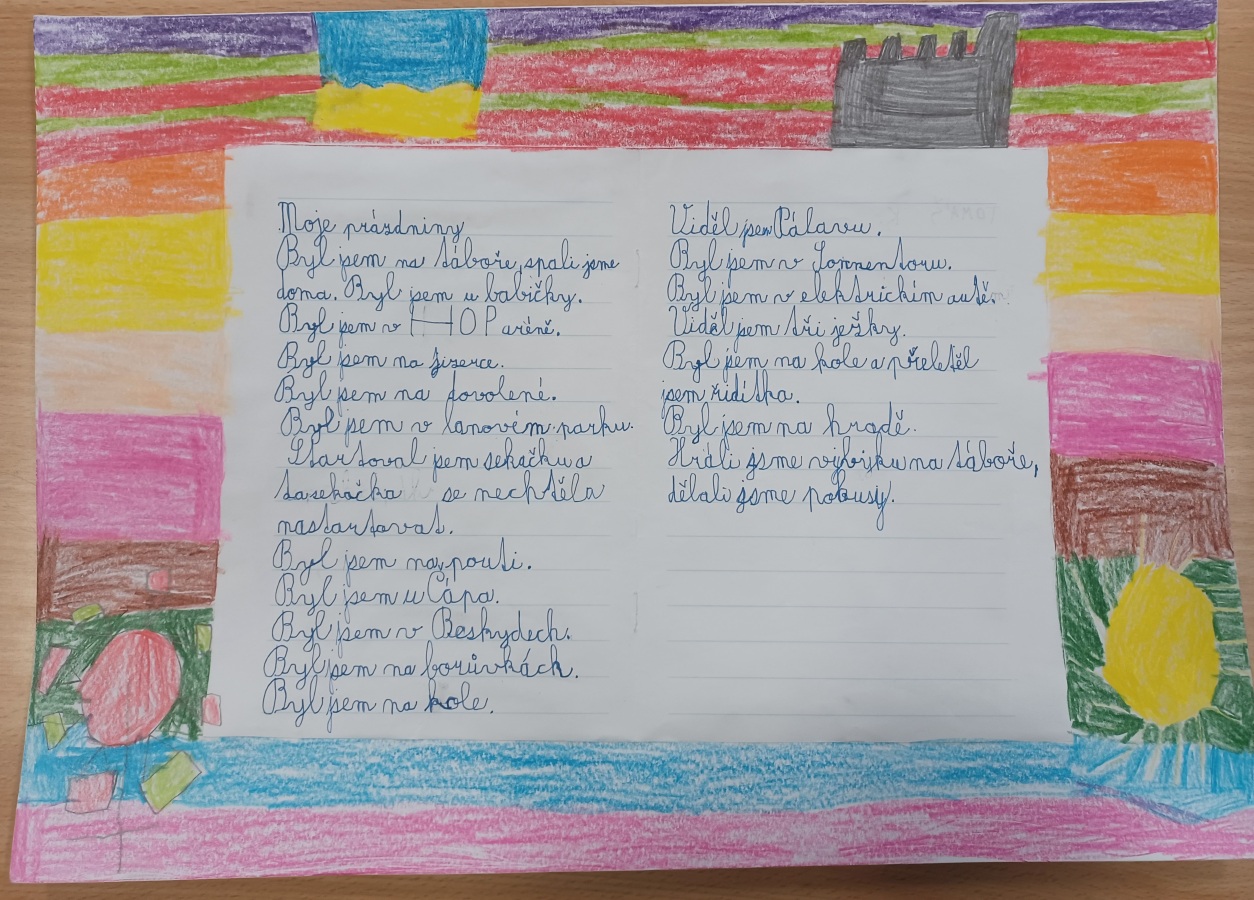 Moje prázdniny
Byl jsem na táboře, spali jsme
doma. Byl jsem u babičky.
Byl jsem v HOP aréně.
Byl jsem na Jizerce.
Byl jsem na dovolené.
Byl jsem v lanovém parku.
Startoval jsem sekačku a
ta sekačka se nechtěla
nastartovat.
Byl jsem na pouti.
Byl jsem u Čápa.
Byl jsem v Beskydech.
Byl jsem na borůvkách.
Byl jsem na kole.
Viděl jsem Pálavu.
Byl jsem v Sonnentoru.
Byl jsem v elektrickím autě.
Viděl jsem tři ježky.
Byl jsem na kole a přeletěl
jsem řidítka.
Byl jsem na hradě.
Hráli jsme vybijku na táboře,
dělali jsme pokusy.